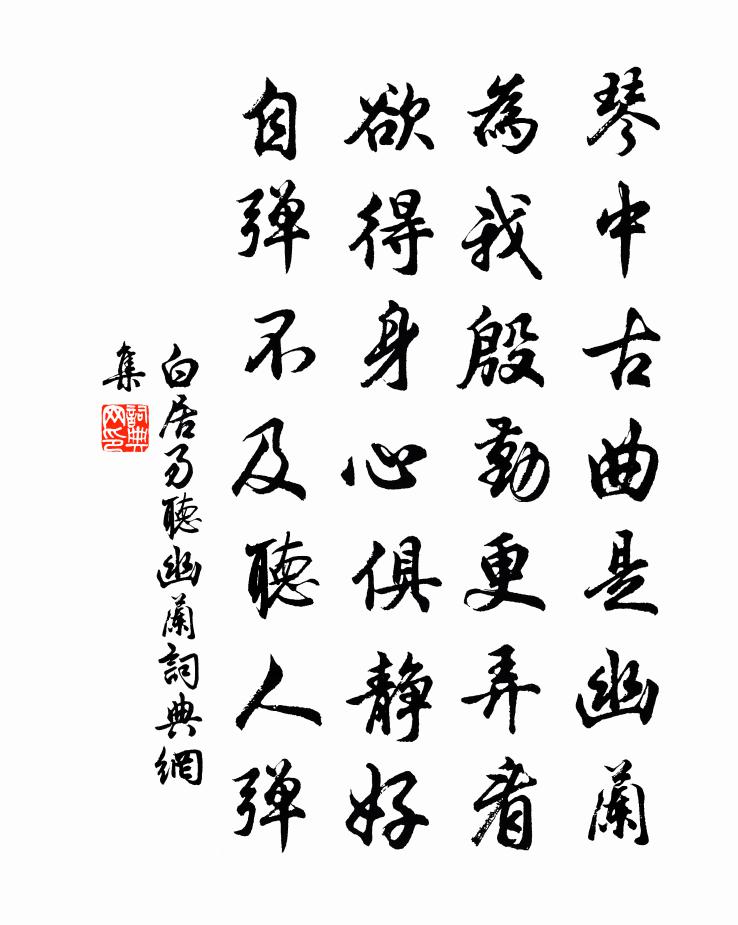 琴中古曲是幽蘭
為我殷勤更弄看
欲得身心俱静好
自弹不及聽人弹
白居易聽幽蘭詞典網
集
詞典网印